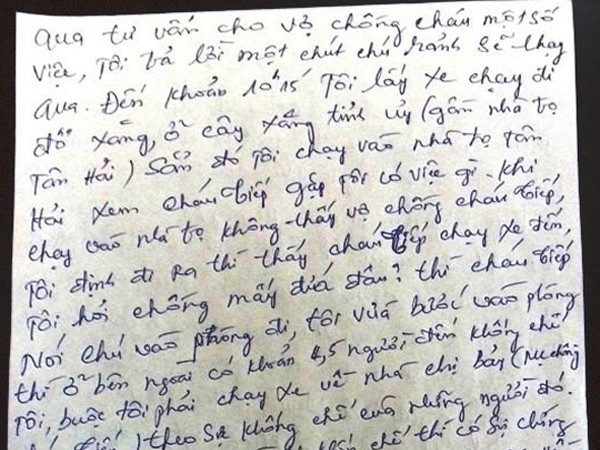 Qua tư vấn cho vợ chồng cháu một số
việc, Tôi trả lời một chút chú rảnh sẽ chạy
qua. Đến khoản 10h15 Tôi lấy xe chạy đi
đổ xăng, ở cây xăng tỉnh ủy (gần nhà trọ
Tân Hải) Sẵn đó tôi chạy vào nhà trọ tân
Hải xem cháu tiếp gặp tôi có việc gì. khi
chạy vào nhà trọ không thấy vợ chồng cháu tiếp,
Tôi định đi ra thì thấy cháu tiếp chạy xe đến,
Tôi hỏi chồng mấy đứa đâu? thì cháu tiếp
Nói chú vào phòng đi, tôi vừa bước vào phòng
thì ở bên ngoài có khoản 4,5 người đến khống chế
Tôi, buộc tôi phải chạy xe về nhà chị bảy (mẹ chồng
tiếp) theo sự khống chế của những người đó.
chế thì có sự chứng